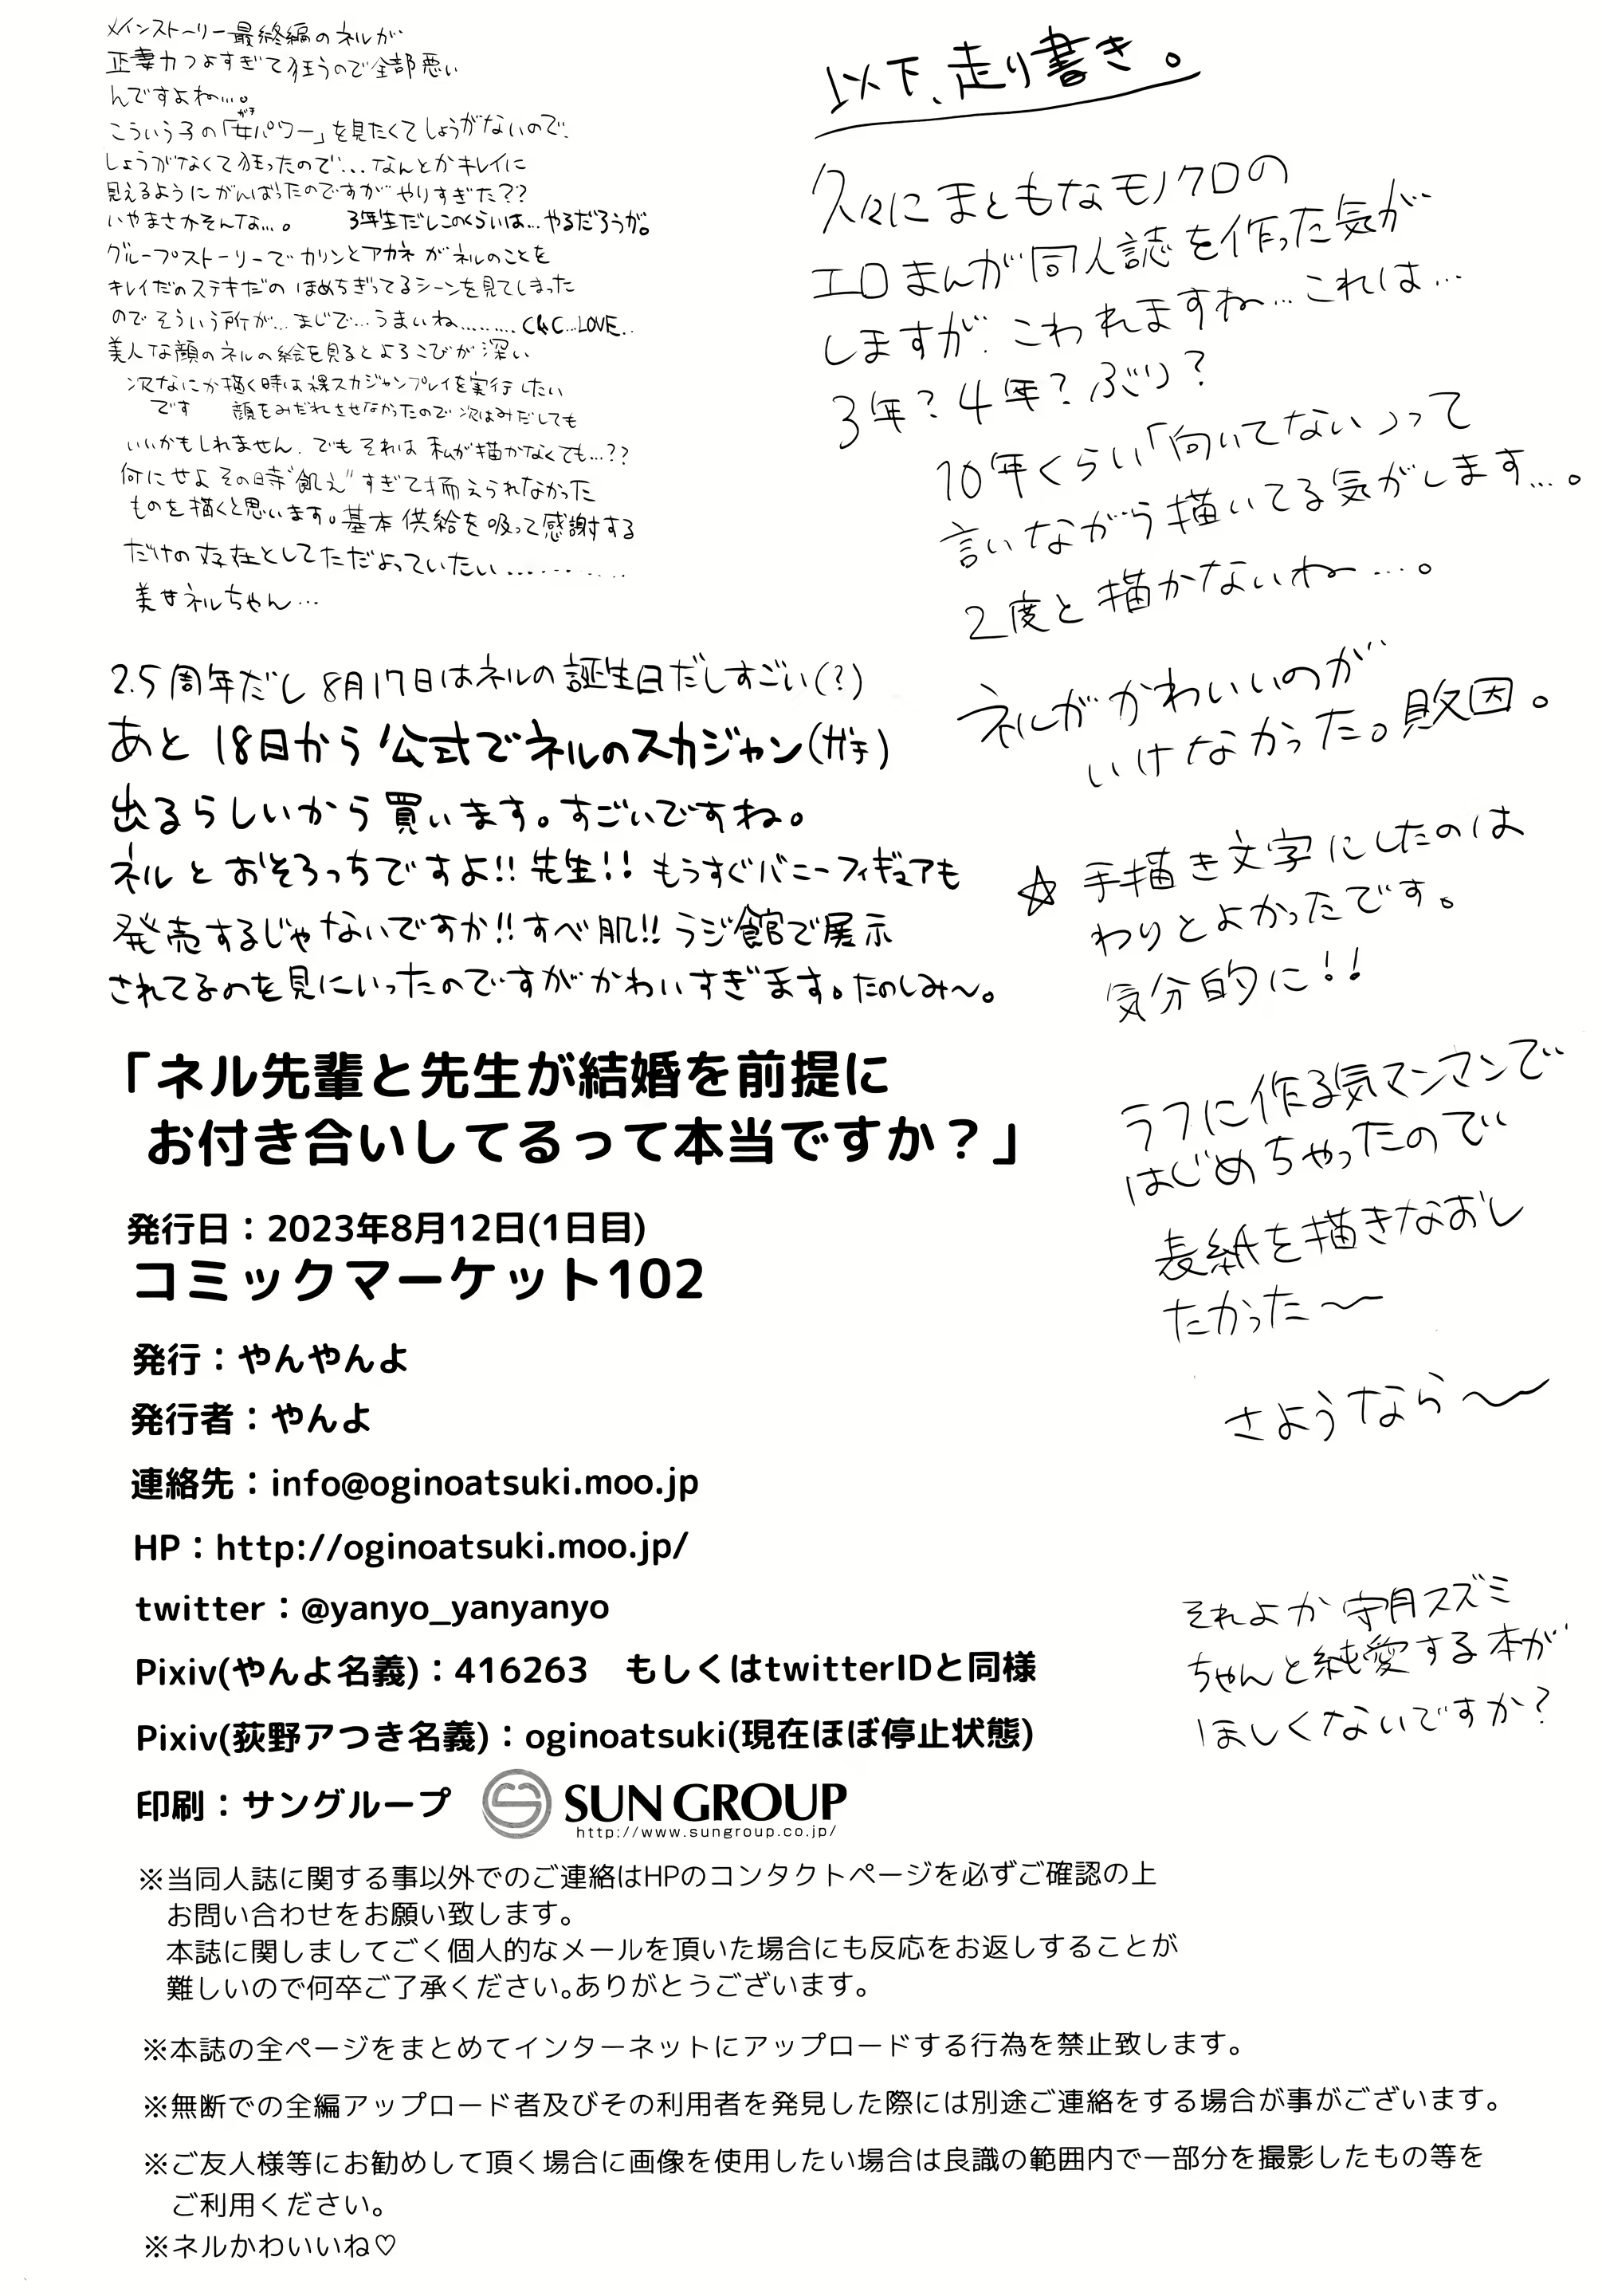 以下、走り書き。
久々にまともなモノクロの
エロまんが同人誌を作った気が
しますが、こわれますね…これは…
3年?4年?ぶり?
10年くらい「向いてない」って
言いながら描いてる気がします…。
2度と描かないね…。
ネルがかわいいのが
いけなかった。敗因。
☆手描き文字にしたのは
わりとよかったです。
気分的に!!
ラフに作る気マンマンで
はじめちゃったので
表紙を描きなおし
たかった〜
さようなら〜
それよか守月スズミ
ちゃんと純愛する本が
ほしくないですか?
メインストーリー最終編のネルが
正妻力つよすぎて狂うので全部悪い
んですよね…。
こういう子の「女パワー」を見たくてしょうがないので、
しょうがなくて狂ったので…なんとかキレイに
見えるようにがんばったのですがやりすぎた??
いやまさかそんな…。 3年生だしこのくらいは…やるだろうが。
グループストーリーでカリンとアカネがネルのことを
キレイだのステキだの ほめちぎってるシーンを見てしまった
のでそういう所が…まじで…うまいね………C&C…LOVE…
美人な顔のネルの絵を見るとよろこびが深い
次なにか描く時は裸スカジャンプレイを実行したい
です 顔をみだれさせなかったので次はみだしても
いいかもしれません。でもそれは私が描かなくても…??
何にせよその時"飢え"すぎて抑えられなかった
ものを描くと思います。基本供給を吸って感謝する
だけの存在としてただよっていたい…………
美女ネルちゃん…
2.5周年だし8月17日はネルの誕生日だしすごい(?)
あと18日から公式でネルのスカジャン(ガチ)
出るらしいから買います。すごいですね。
ネルとおそろっちですよ!!先生!!もうすぐバニーフィギュアも
発売するじゃないですか!!すべ肌!!ラジ館で展示
されてるのを見にいったのですがかわいすぎます。たのしみ〜。
「ネル先輩と先生が結婚を前提に
お付き合いしてるって本当ですか?」
発行日:2023年8月12日(1日目)
コミックマーケット102
発行:やんやんよ
発行者:やんよ
連絡先:info@oginoatsuki.moo.jp
HP:http://oginoatsuki.moo.jp/
twitter:@yanyo_yanyanyo
Pixiv(やんよ名義):416263 もしくはtwitterIDと同様
Pixiv(荻野アつき名義):oginoatsuki(現在ほぼ停止状態)
印刷:サングループ SUN GROUP
http://www.sungroup.co.jp/
※当同人誌に関する事以外でのご連絡はHPのコンタクトページを必ずご確認の上
お問い合わせをお願い致します。
本誌に関しましてごく個人的なメールを頂いた場合にも反応をお返しすることが
難しいので何卒ご了承ください。ありがとうございます。
※本誌の全ページをまとめてインターネットにアップロードする行為を禁止致します。
※無断での全編アップロード者及びその利用者を発見した際には別途ご連絡をする場合が事がございます。
※ご友人様等にお勧めして頂く場合に画像を使用したい場合は良識の範囲内で一部分を撮影したもの等を
ご利用ください。
※ネルかわいいね♡